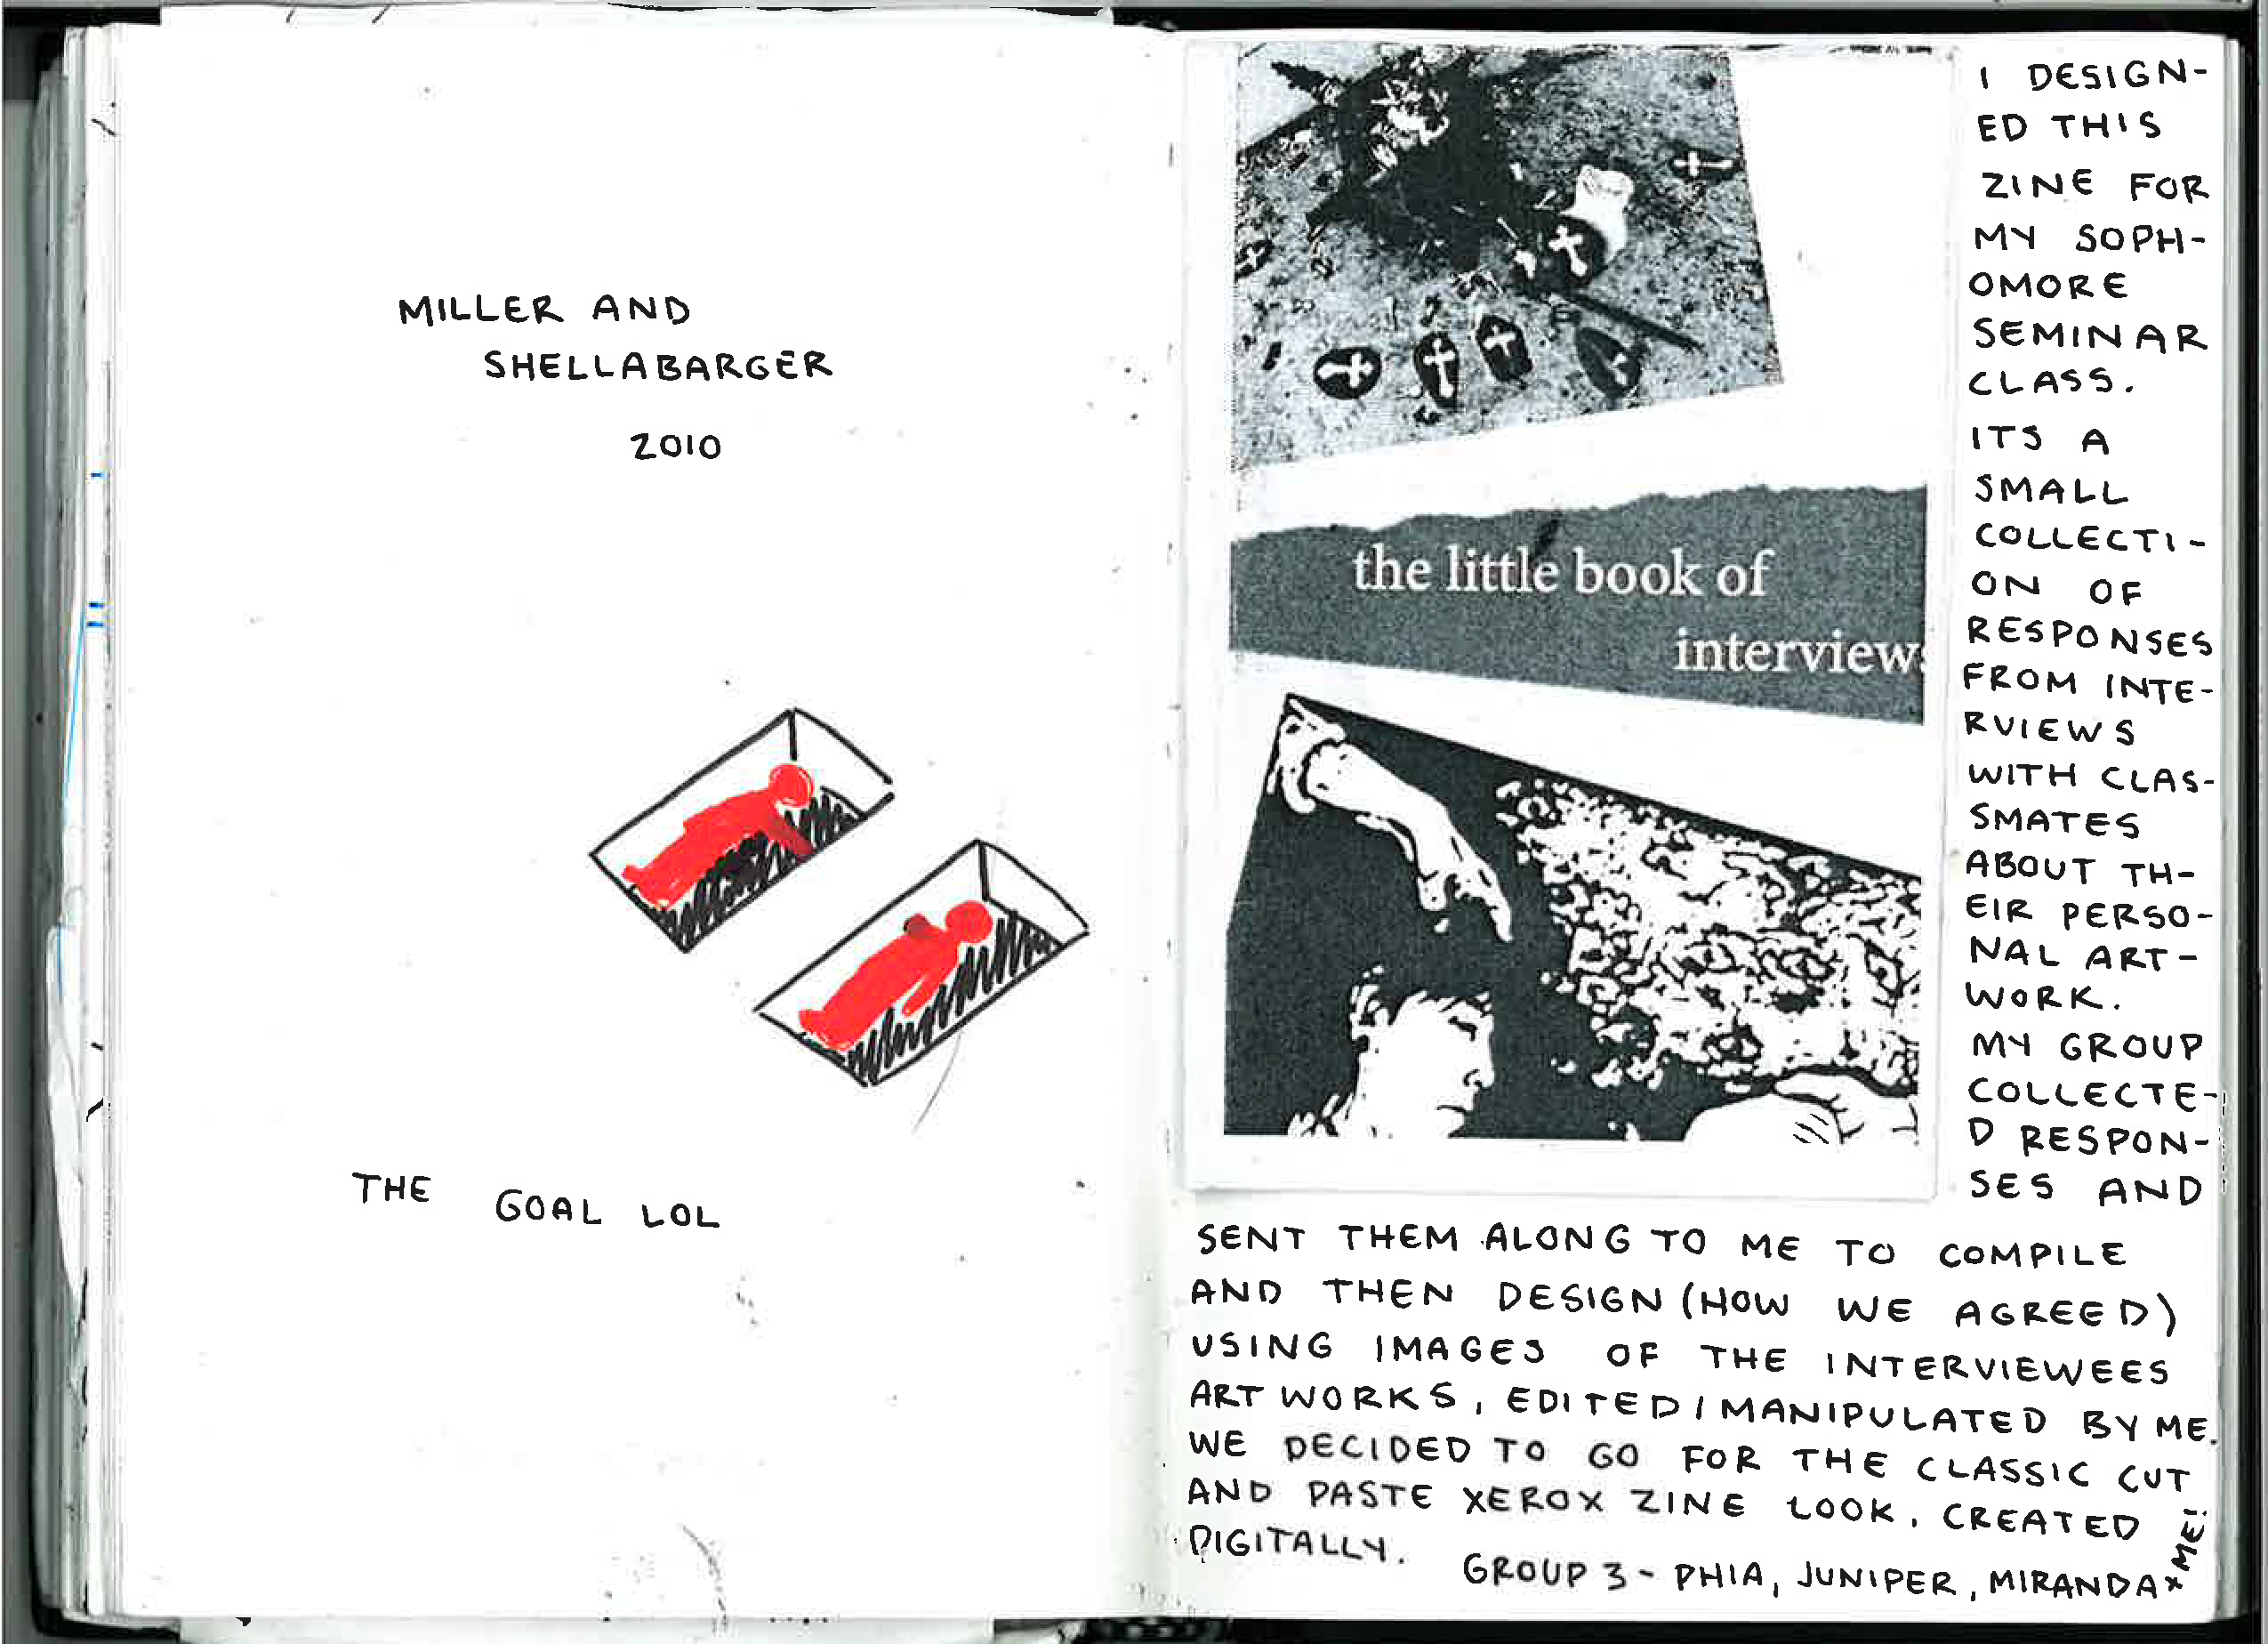 MILLER AND
SHELLABARGER
2010
THE GOAL LOL
the little book of
interviews
I DESIGN-
ED THIS
ZINE FOR
MY SOPH-
OMORE
SEMINAR
CLASS.
ITS A
SMALL
COLLECTI-
ON OF
RESPONSES
FROM INTE-
RVIEWS
WITH CLAS-
SMATES
ABOUT TH-
EIR PERSO-
NAL ART-
WORK.
MY GROUP
COLLECTE-
D RESPON-
SES AND
SENT THEM ALONG TO ME TO COMPILE
AND THEN DESIGN (HOW WE AGREED)
USING IMAGES OF THE INTERVIEWEES
ART WORKS, EDITED/MANIPULATED BY ME.
WE DECIDED TO GO FOR THE CLASSIC CUT
AND PASTE XEROX ZINE LOOK, CREATED
DIGITALLY.
GROUP 3 - PHIA, JUNIPER, MIRANDA + ME!